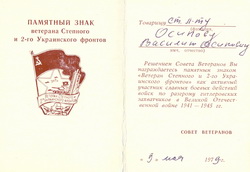 ПАМЯТНЫЙ ЗНАК
ветерана Степного
и 2-го Украинского фронтов
Товарищ ст. л-ту
Осипову
Василию Осиповичу
Решением Совета Ветеранов Вы
награждаетесь памятным знаком
«Ветеран Степного и 2-го Укра-
инского фронтов» как активный
участник главных боевых действий
войск по разгрому гитлеровских
захватчиков в Великой Отечест-
венной войне 1941—1945 гг.
СОВЕТ ВЕТЕРАНОВ
9 мая 1979г.